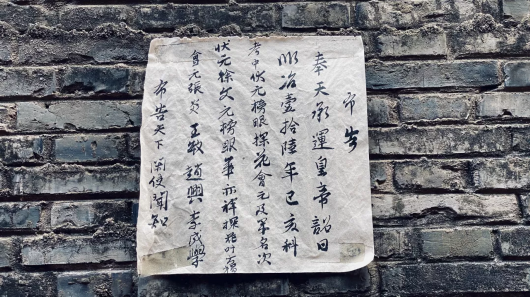 布告
奉天承運皇帝詔曰
順治壹拾陸年己亥科
考中状元榜眼探花會元及第名次
状元徐文元榜眼華亦祥探花叶方藹
會元張 王敏 趙興 李成樂
布告天下 閑使聞知